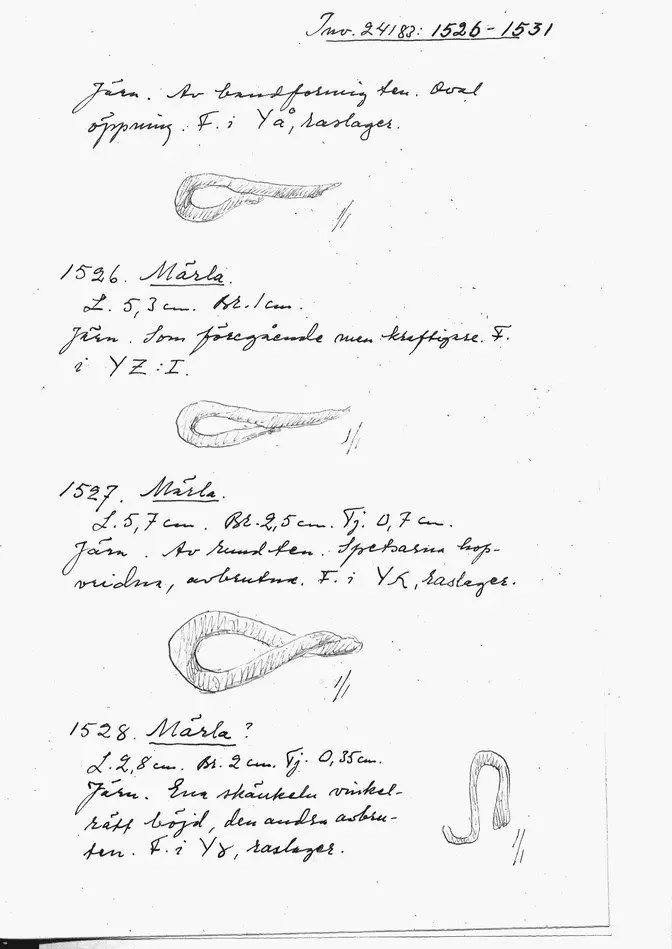 Inv. 24183: 1526-1531
Järn. Av bandformig ten. Oval
öppning. F. i YÅ, raslager.
1/1
1526. Märla.
L. 5,3 cm. Br. 1 cm.
Järn. Som föregående men kraftigare. F.
i YZ:I.
1/1
1527. Märla.
L. 5,7 cm. Br. 2,5 cm. Tj. 0,7 cm.
Järn. Av rund ten. Spetsarna hop-
vridna, avbrutna. F. i YK, raslager.
1/1
1528. Märla?
L. 2,8 cm. Br. 2 cm. Tj. 0,35 cm.
Järn. Ena skänkeln vinkel-
rätt böjd, den andra avbru-
ten. F. i Yγ, raslager.
1/1